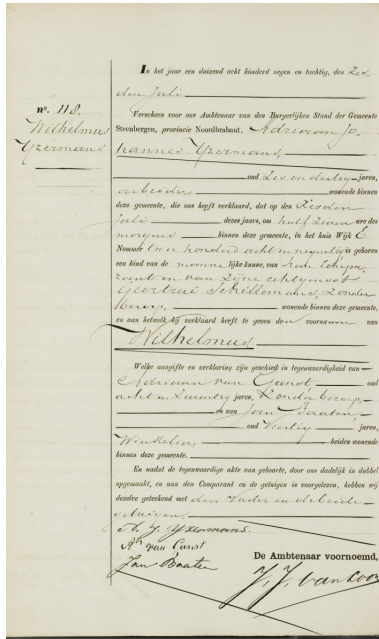 In het jaar een duizend acht honderd negen en tachtig, den Zes
den Juli
Verscheen voor ons Ambtenaar van den Burgerlijken Stand der Gemeente
Steenbergen, provincie Noordbrabant, Adriaan Jo=
hannes Yzermans,
oud Zes en dertig jaren,
arbeider, wonende binnen
deze gemeente, die ons heeft verklaard, dat op den Zesden
Juli dezes jaars, om half zeven ure des
morgens binnen deze gemeente, in het huis Wijk E
Nommer twee honderd acht en negentig is geboren
een kind van de mannelijke kunne, van hem Compa=
rant en van zijne echtgenoot
Geertrui Schillemans, zonder
beroep, wonende binnen deze gemeente,
en aan hetwelk hij verklaard heeft te geven den voornaam van
Wilhelmus
Welke aangifte en verklaring zijn geschied in tegenwoordigheid van
Adriaan van Gunst, oud
acht en twintig jaren, zonder beroep,
en van Jan Baaten,
oud veertig jaren,
Winkelier, beiden wonende
binnen deze gemeente.
En nadat de tegenwoordige akte van geboorte, door ons dadelijk in dubbel
opgemaakt, en aan den Comparant en de getuigen is voorgelezen, hebben wij
dezelve geteekend met den Vader en de beide
getuigen.
A. J. Yzermans.
Ad van Gunst
Jan Baaten
De Ambtenaar voornoemd,
J. J. van Loon
No. 118.
Wilhelmus
Yzermans